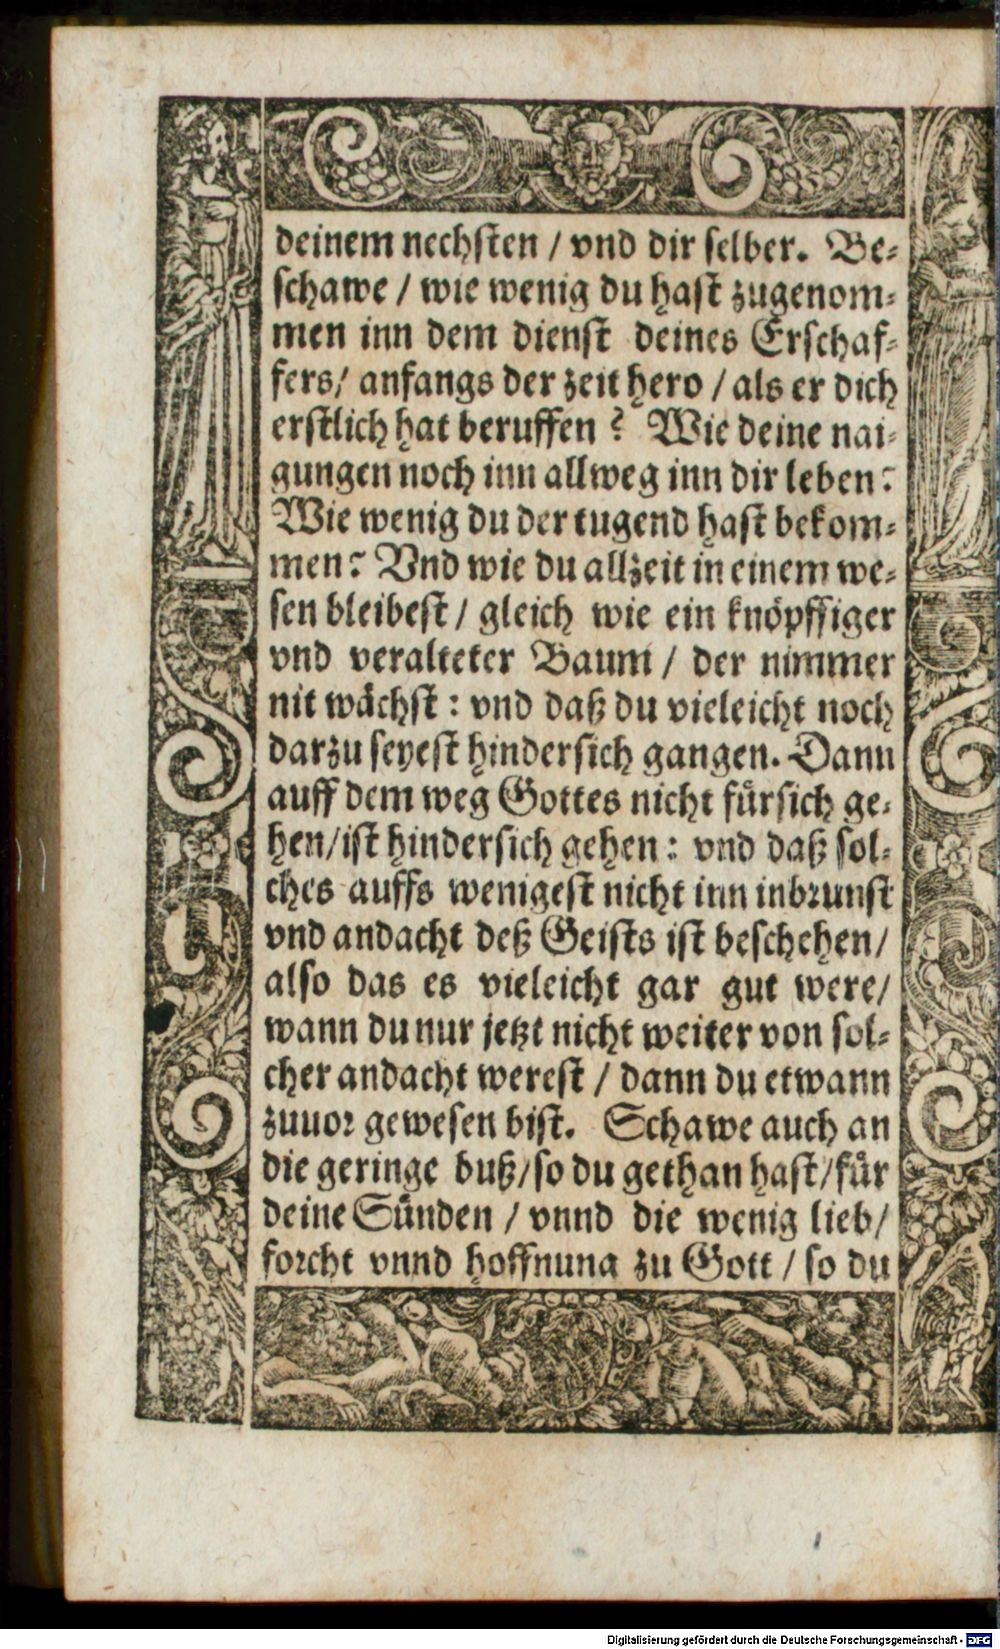 deinem nechsten / vnd dir selber. Be-
schawe / wie wenig du hast zugenom-
men inn dem dienst deines Erschaf-
fers / anfangs der zeit hero / als er dich
erstlich hat beruffen? Wie deine nai-
gungen noch inn allweg inn dir leben?
Wie wenig du der tugend hast bekom-
men? Vnd wie du allzeit in einem we-
sen bleibest / gleich wie ein knöpffiger
vnd veralteter Baum / der nimmer
nit wächst: vnd daß du vieleicht noch
darzu seyest hindersich gangen. Dann
auff dem weg Gottes nicht fürsich ge-
hen/ist hindersich gehen: vnd daß sol-
ches auffs wenigest nicht inn inbrunst
vnd andacht deß Geists ist beschehen/
also das es vieleicht gar gut were/
wann du nur jetzt nicht weiter von sol-
cher andacht werest / dann du etwann
zuuor gewesen bist. Schawe auch an
die geringe buß/so du gethan hast/für
deine Sünden / vnnd die wenig lieb/
forcht vnnd hoffnung zu Gott / so du
Digitalisierung gefördert durch die Deutsche Forschungsgemeinschaft - DFG